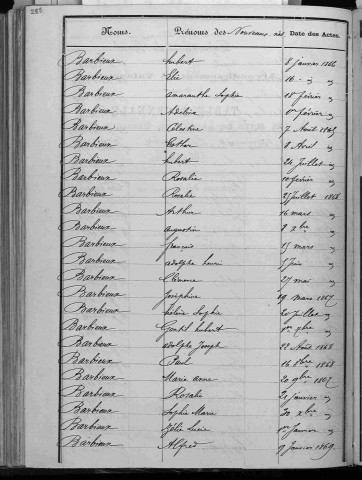 Noms. Prénoms des Nouveaux nés Date des Actes.
Barbieux hubert 8 Janvier 1866
Barbieux Elie 16 - "
Barbieux amaranthe Sophie 18 février "
Barbieux Adelina 1er février "
Barbieux Célestine 7 Août 1865
Barbieux Esther 8 Août "
Barbieux hubert 20 Juillet "
Barbieux Rosalie février "
Barbieux Rosalie Juillet 1868
Barbieux Arthur 16 mars "
Barbieux augustin 8 xbre "
Barbieux françois 15 mars "
Barbieux adolphe henri Juin "
Barbieux Clémence 27 mai "
Barbieux Joséphine 19 mars 1867
Barbieux Sophie Juillet "
Barbieux Gentil hubert xbre "
Barbieux adolphe Joseph 22 Août 1868
Barbieux Paul 16 8bre 1868
Barbieux Marie anne 20 9bre 1867
Barbieux Rosalie 21 janvier "
Barbieux Sophie Marie 20 xbre "
Barbieux Zélie Lucie 1er Janvier "
Barbieux Alfred 9 Janvier 1869